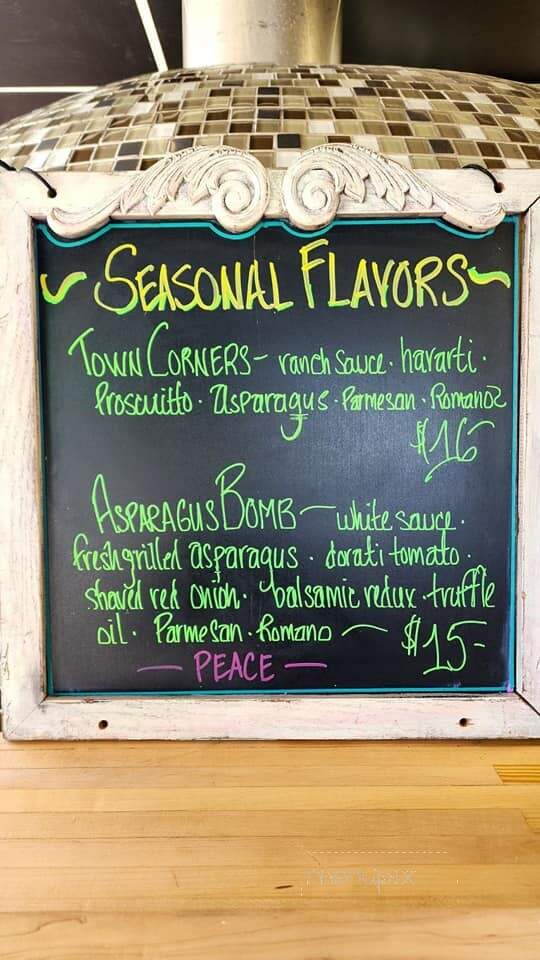 ~ SEASONAL FLAVORS ~
TOWN CORNERS - ranch sauce. havarti.
Proscuitto. asparagus. Parmesan. Romano
$16
ASPARAGUS BOMB - white sauce.
fresh grilled asparagus. dorati tomato.
shaved red onion. balsamic redux. truffle
oil. Parmesan. Romano - $15-
- PEACE -
menupix